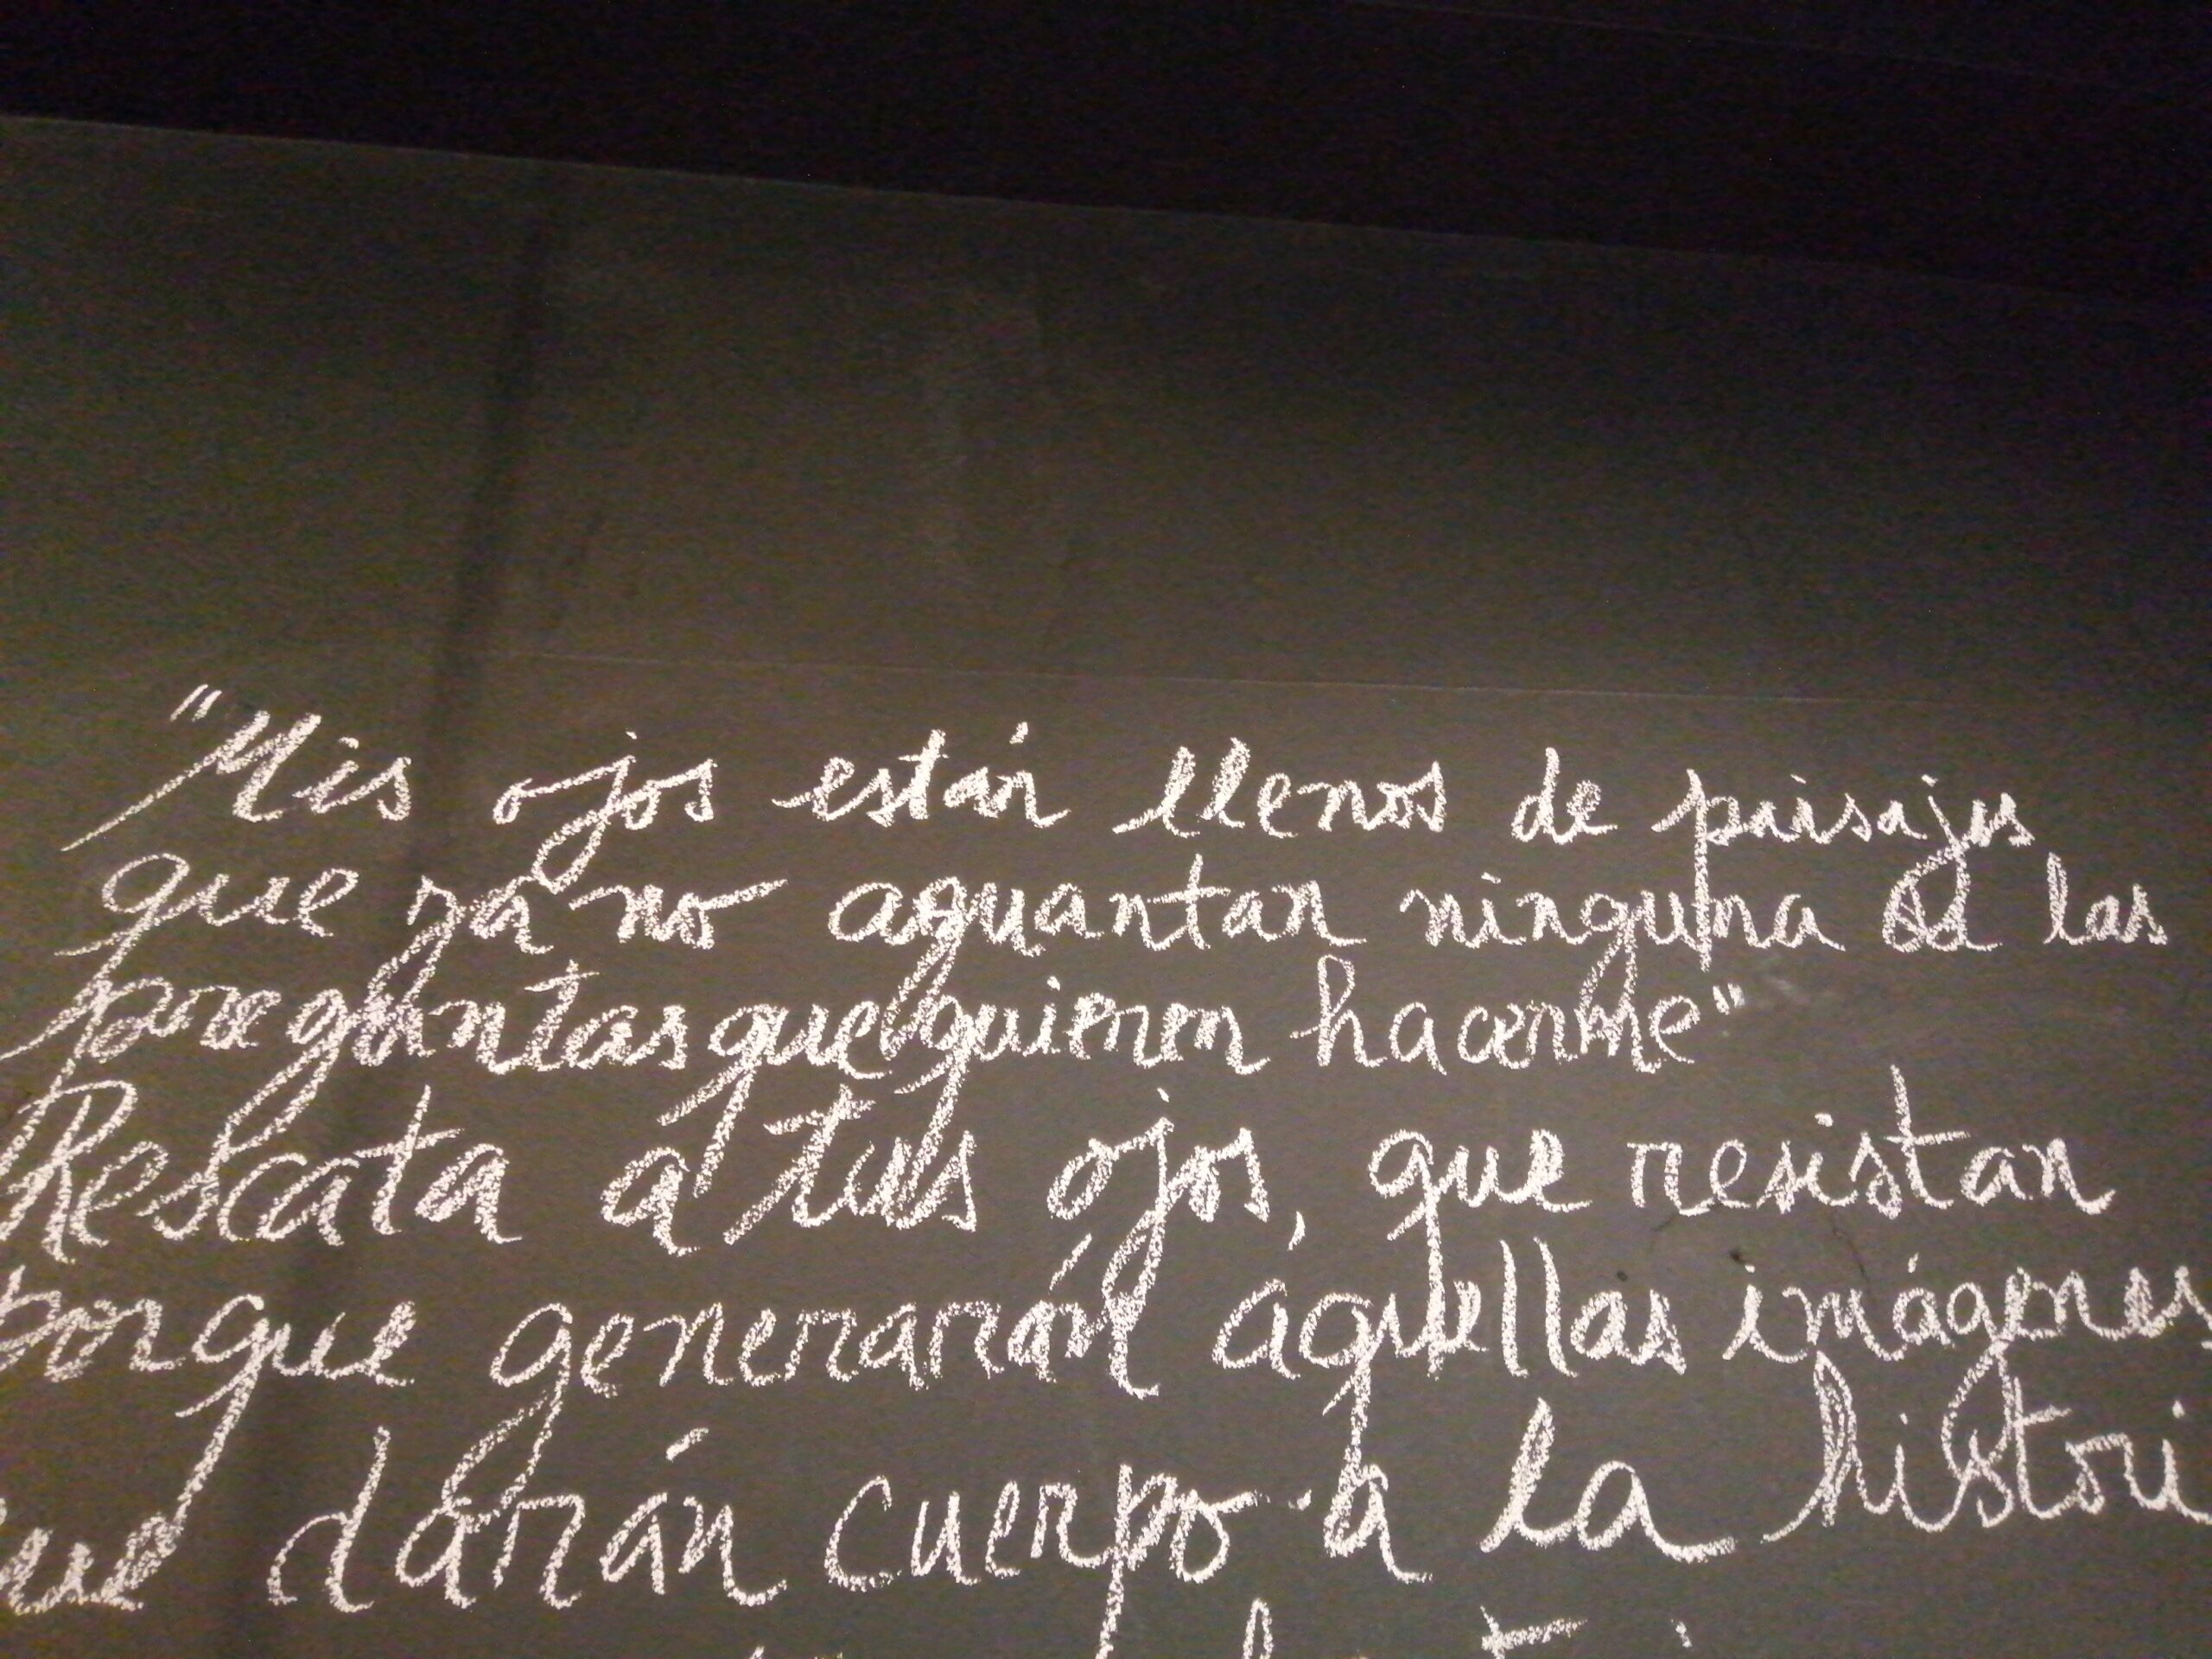 "Mis ojos están llenos de paisajes
que ya no aguantan ninguna de las
preguntas que quieren hacerme"
Rescata a tus ojos, que resistan
porque generarán aquellas imágenes
que darán cuerpo a la histori